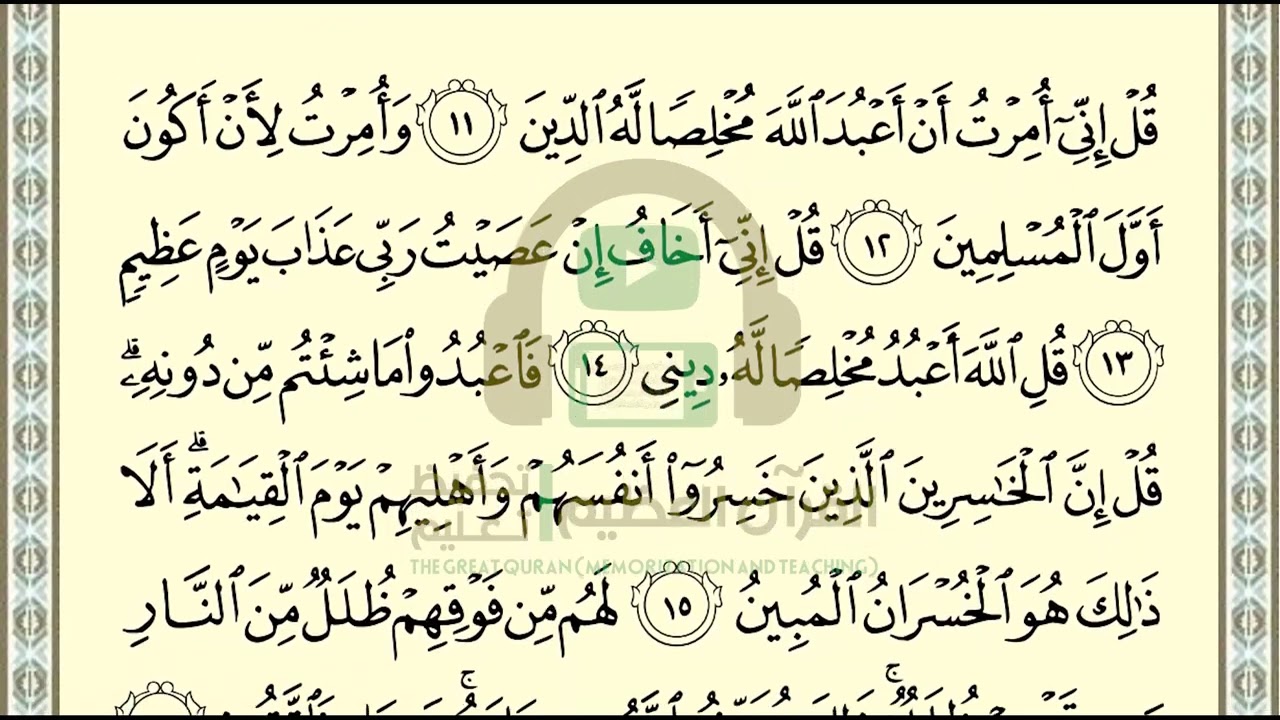 قُلْ إِنِّيٓ أُمِرْتُ أَنْ أَعْبُدَ ٱللَّهَ مُخْلِصًا لَّهُ ٱلدِّينَ ١١ وَأُمِرْتُ لِأَنْ أَكُونَ
أَوَّلَ ٱلْمُسْلِمِينَ ١٢ قُلْ إِنِّيٓ أَخَافُ إِنْ عَصَيْتُ رَبِّي عَذَابَ يَوْمٍ عَظِيمٍ
١٣ قُلِ ٱللَّهَ أَعْبُدُ مُخْلِصًا لَّهُۥ دِينِي ١٤ فَٱعْبُدُوا۟ مَا شِئْتُم مِّن دُونِهِۦۗ
قُلْ إِنَّ ٱلْخَٰسِرِينَ ٱلَّذِينَ خَسِرُوٓا۟ أَنفُسَهُمْ وَأَهْلِيهِمْ يَوْمَ ٱلْقِيَٰمَةِۗ أَلَا
القرآن العظيم تحفيظ تعليم
THE GREAT QURAN (MEMORIZATION AND TEACHING)
ذَٰلِكَ هُوَ ٱلْخُسْرَانُ ٱلْمُبِينُ ١٥ لَهُم مِّن فَوْقِهِمْ ظُلَلٌ مِّنَ ٱلنَّارِ